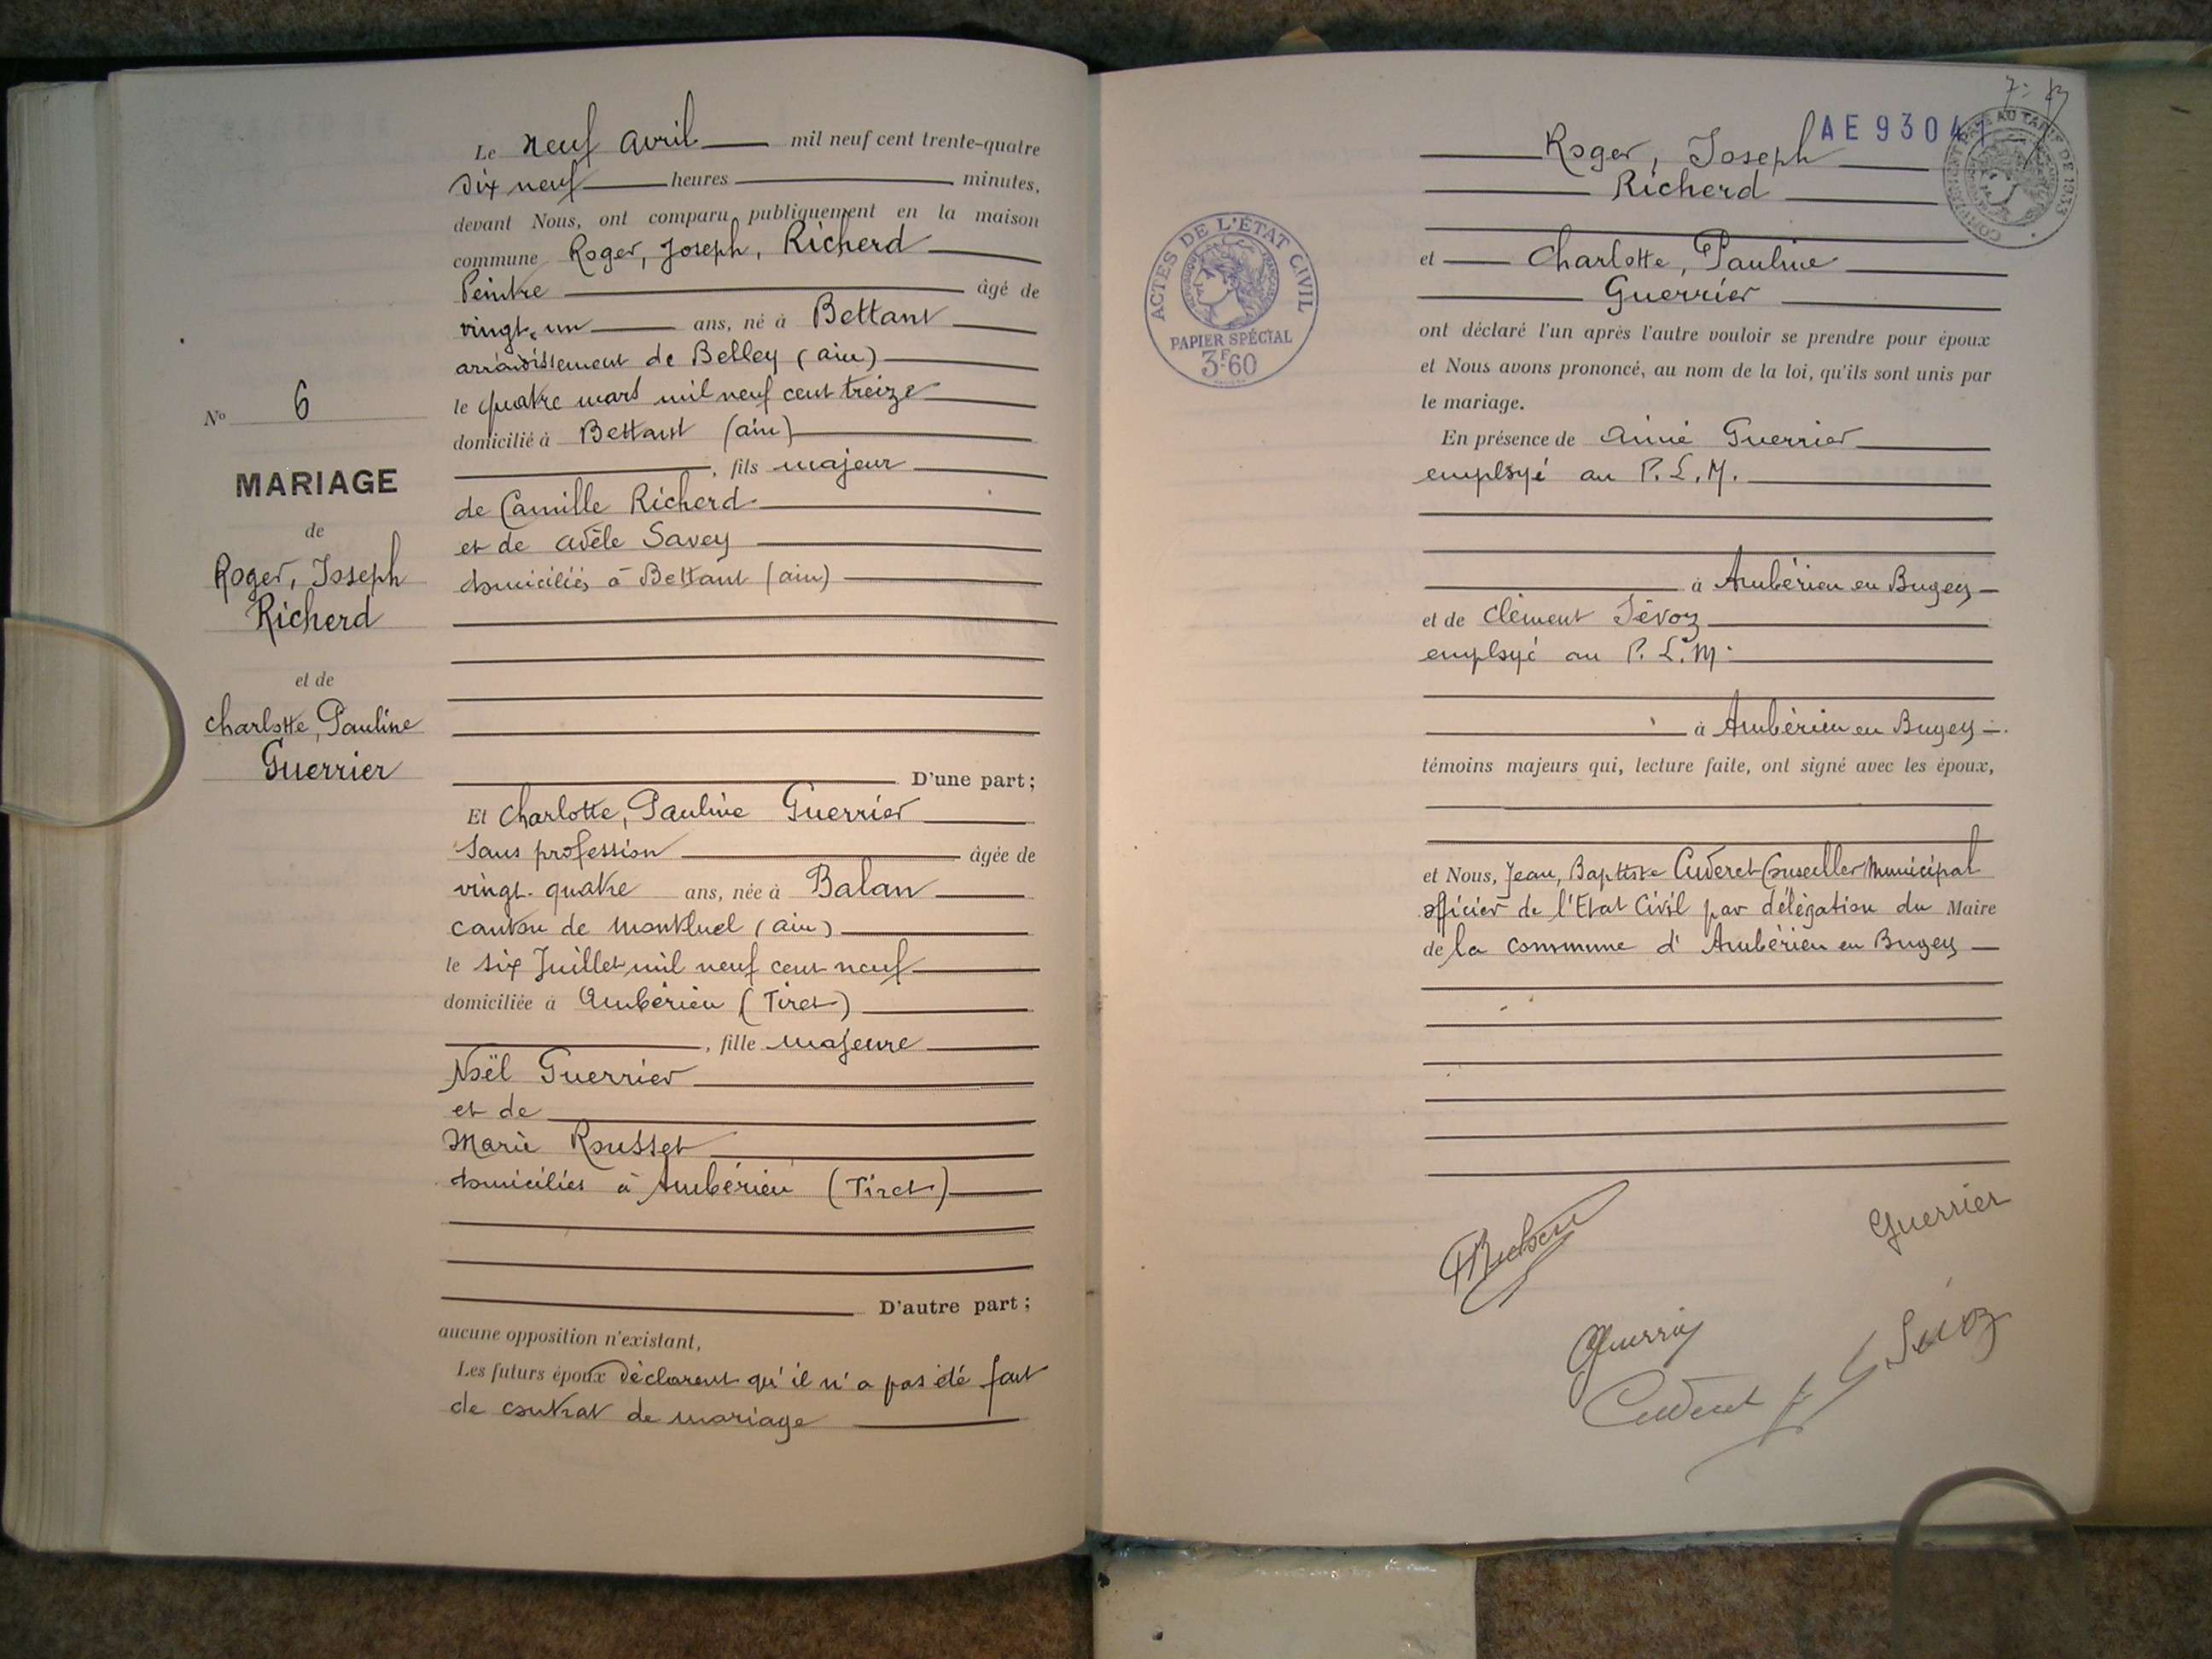 Le neuf avril mil neuf cent trente-quatre
dix neuf heures minutes,
devant Nous, ont comparu publiquement en la maison
commune Roger, Joseph, Richerd
Peintre âgé de
vingt-un ans, né à Bettant
arrondissement de Belley (ain)
le quatre mars mil neuf cent treize
domicilié à Bettant (ain)
, fils majeur
de Camille Richerd
et de adèle Savey
domiciliés à Bettant (ain)
D'une part;
Et Charlotte, Pauline Guerrier
Sans profession âgée de
vingt-quatre ans, née à Balan
canton de Montluel (ain)
le six Juillet mil neuf cent neuf
domiciliée à Ambérieu (Tiret)
, fille majeure
Noël Guerrier
et de
Marie Rousset
domiciliés à Ambérieu (Tiret)
D'autre part;
aucune opposition n'existant,
Les futurs époux déclarent qu'il n'a pas été fait
de contrat de mariage
No 6
MARIAGE
de
Roger, Joseph
Richerd
et de
Charlotte, Pauline
Guerrier
AE 9304
Roger, Joseph
Richerd
et Charlotte, Pauline
Guerrier
ont déclaré l'un après l'autre vouloir se prendre pour époux
et Nous avons prononcé, au nom de la loi, qu'ils sont unis par
le mariage.
En présence de Aimé Guerrier
employé au P.L.M.
à Ambérieu en Bugey
et de Clément Sévoz
employé au P.L.M.
à Ambérieu en Bugey
témoins majeurs qui, lecture faite, ont signé avec les époux,
et Nous, Jean, Baptiste Cuderet Conseiller Municipal
officier de l'Etat Civil par délégation du Maire
de la commune d'Ambérieu en Bugey
ACTES DE L'ÉTAT CIVIL
RÉPUBLIQUE FRANÇAISE
PAPIER SPÉCIAL
3F60
Guerrier
Cuderet